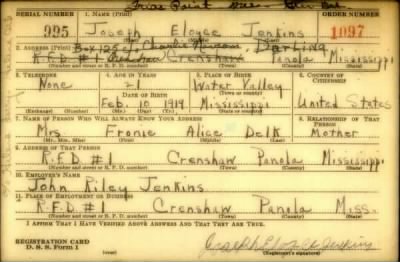 Friars Point Miss.
SERIAL NUMBER 1. NAME (Print) ORDER NUMBER
995 Joseph Eloyce Jenkins 1097
2. ADDRESS (Print) Box 125 c/o Charlie Darling
R.F.D #1 Crenshaw Panola Mississippi
(Number and street or R. F. D. number) (Town) (County) (State)
3. TELEPHONE 4. AGE IN YEARS 5. PLACE OF BIRTH 6. COUNTRY OF CITIZENSHIP
None 21 Water Valley
DATE OF BIRTH
Feb. 10 1919 Mississippi United States
(Exchange) (Number) (Mo.) (Day) (Yr.) (State or country)
7. NAME OF PERSON WHO WILL ALWAYS KNOW YOUR ADDRESS 8. RELATIONSHIP OF THAT PERSON
Mrs Fronie Alice Delk Mother
(Mr., Mrs., Miss) (First) (Middle) (Last)
9. ADDRESS OF THAT PERSON
R.F.D #1 Crenshaw Panola Mississippi
(Number and street or R. F. D. number) (Town) (County) (State)
10. EMPLOYER'S NAME
John Riley Jenkins
11. PLACE OF EMPLOYMENT OR BUSINESS
R.F.D #1 Crenshaw Panola Miss.
(Number and street or R. F. D. number) (Town) (County) (State)
I AFFIRM THAT I HAVE VERIFIED ABOVE ANSWERS AND THAT THEY ARE TRUE.
REGISTRATION CARD
D. S. S. Form 1
Joseph Eloyce Jenkins
(Registrant's signature)